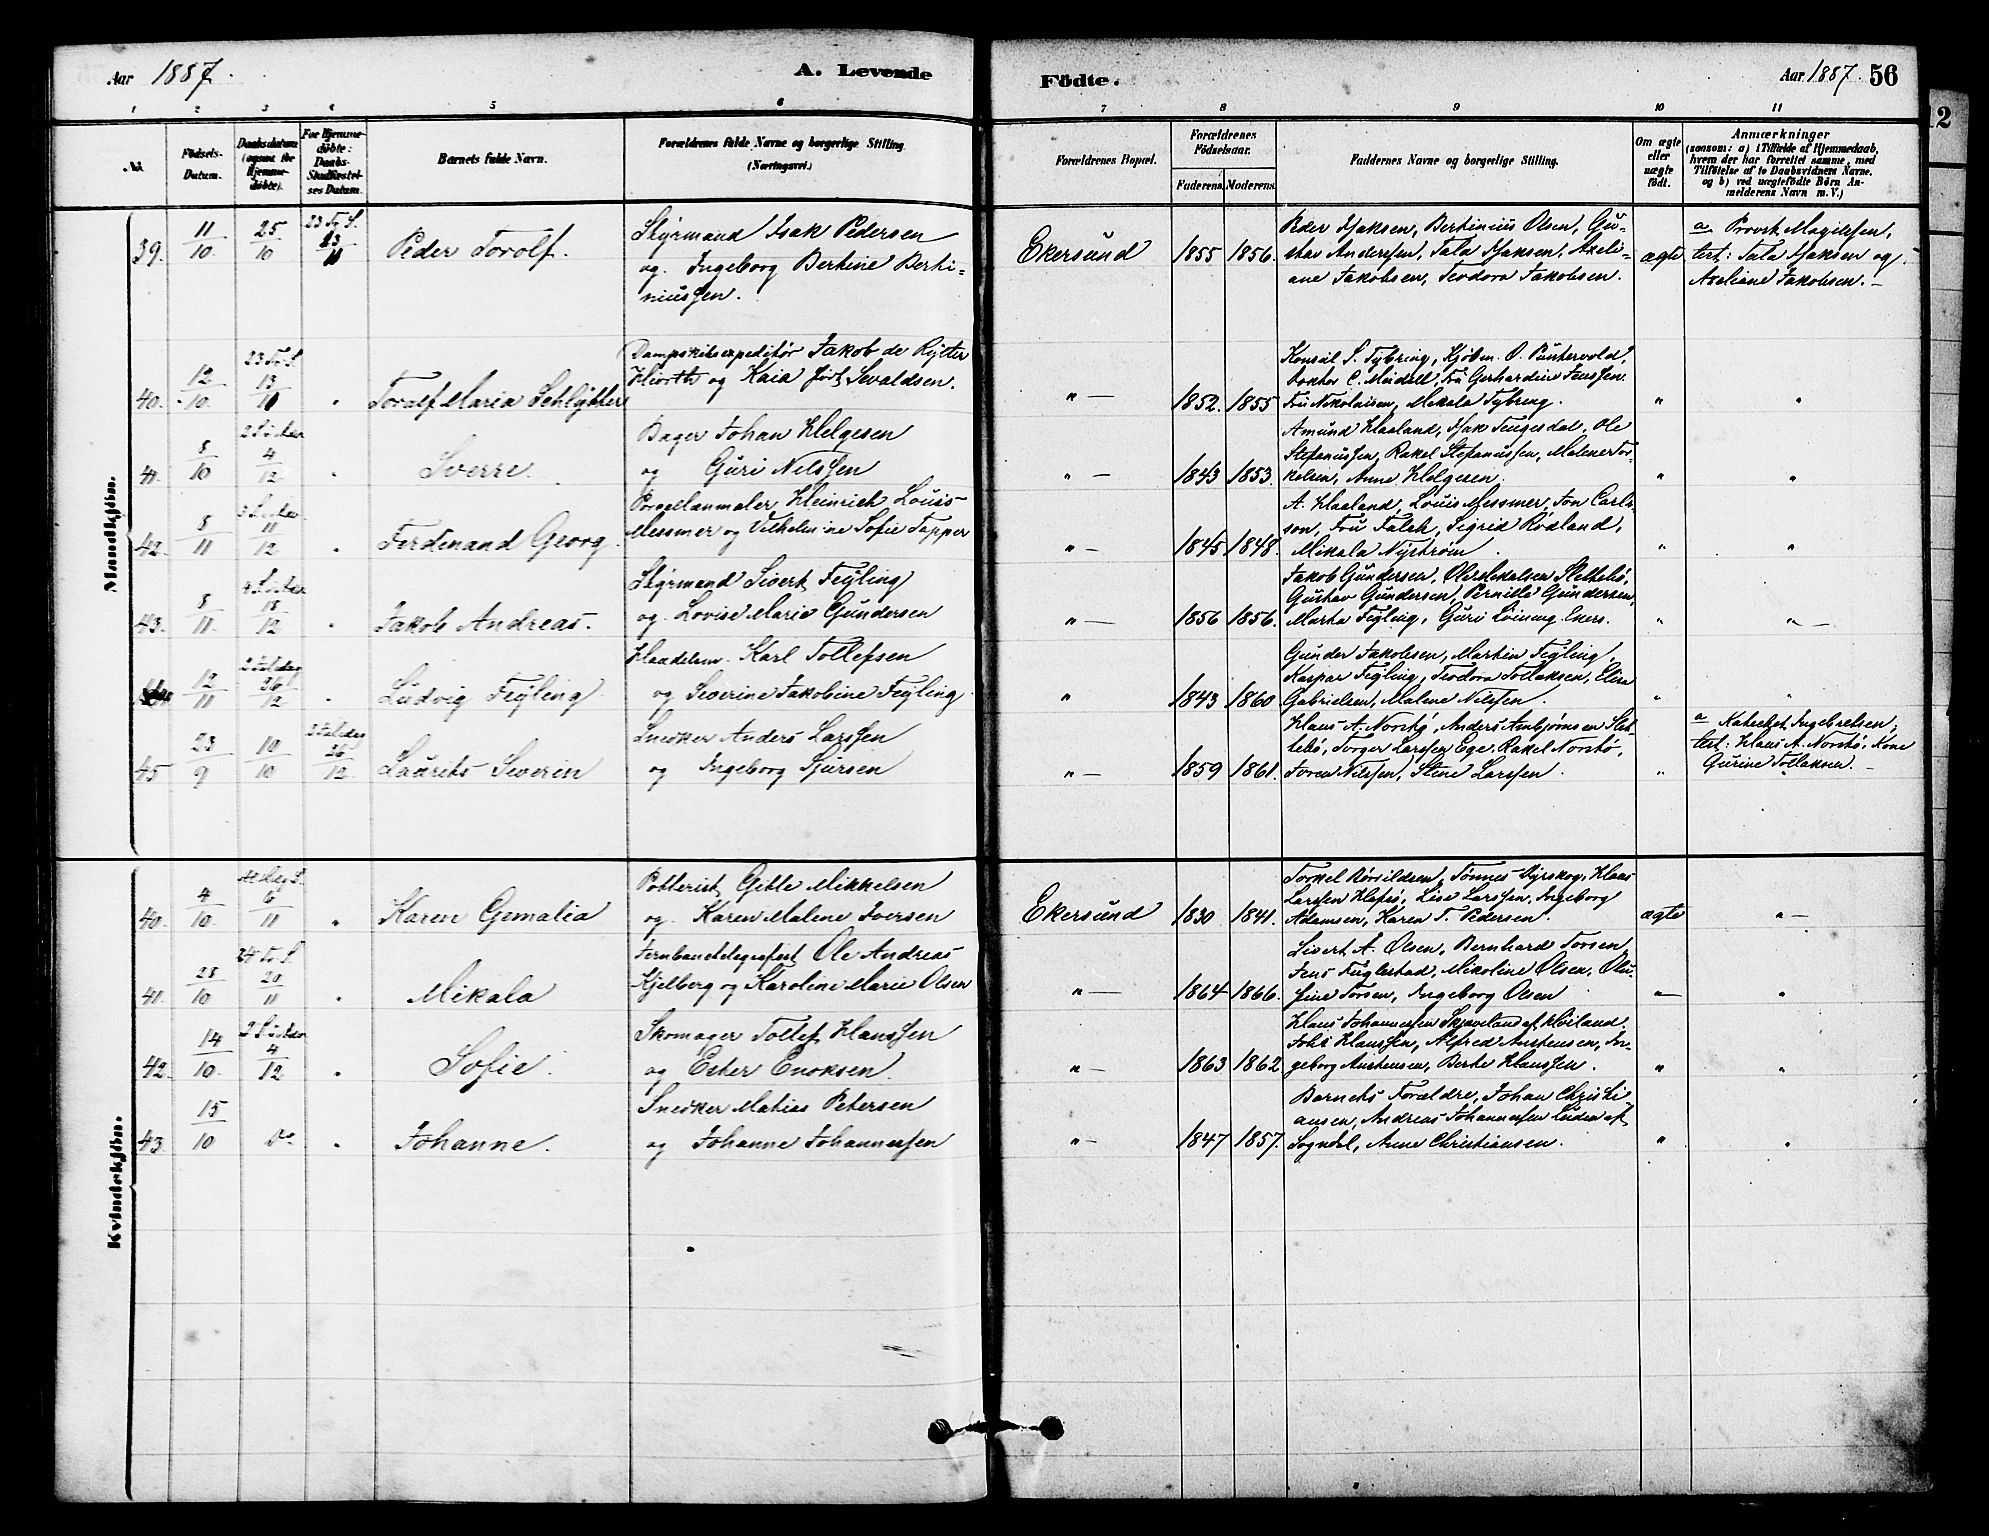 Aar 1887.
A. Levende
Födte.
Aar 1887. 56
2
1 2 3 4 5 6 7 8 9 10 11
No.
Födsels-Datum.
Daabsdatum (ogsaa for Hjemmedöbte).
For Hjemmedöbte: Daabs-Stadfæstelses Datum.
Barnets fulde Navn.
Forældrenes fulde Navne og borgerlige Stilling (Næringsvei.)
Forældrenes Bopæl.
Forældrenes Födselsaar.
Faderens. Moderens.
Faddernes Navne og borgerlige Stilling.
Om ægte eller uægte födt.
Anmærkninger
(saasom: a) i Tilfælde af Hjemmedaab,
hvem der har forrettet samme, med
Tilföielse af to Daabsvidners Navne,
og b) ved uægtefödte Börn An-
melderens Navn m. V.)
Mandkjön.
39. 11/10 25/10 23 Tr. S. 13/11 Peder Torolf.
Styrmand Isak Pedersen
og Ingeborg Bertine Berti-
niussen.
Ekersund 1855 1856.
Peder Isaksen, Bertinius Olsen, Gu-
stav Andersen, Tala Isaksen, Axeli-
ane Jakobsen, Teodora Jakobsen.
ægte
a. Provst Magelssen,
test: Tala Isaksen og
Axeliane Jakobsen. —
40. 12/10 23 Tr. S. 13/11 " Toralf Maria Schlytter
Dampskibsexpeditör Jakob de Rytter
Hiorth og Kaia född Sevaldsen.
" — 1852. 1855
Konsul S. Tybring, Kjöbm. O. Puntervold,
Doktor C. Meidell, Fru Gerhardine Jenssen
Fru Nikolaisen, Mikala Tybring.
" "
41. 8/10 2 S. i Adv. 4/12 " Sverre.
Bager Johan Helgesen
og Guri Nilssen
" — 1843 1853.
Amund Haaland, Isak Tengesdal, Ole
Stefanussen, Rakel Stefanussen, Malene Tor-
kelsen, Anne Helgesen.
" "
42. 8/11 3 S. i Adv. 11/12 " Ferdinand Georg
Porcellanmaler, Heinrich Louis
Messmer og Vilhelmine Sofie Tapper
" — 1845 1848.
A. Haaland, Louis Messmer, Jon Carls-
son, Fru Falch, Sigrid Rödland,
Mikala Nyström.
" "
43. 8/11. 4 S. i Adv. 18/12 " Jakob Andreas.
Styrmand Sivert Feyling
og Lovise Marie Gundersen
" — 1856 1856.
Jakob Gundersen, Ole Mikalsen Slettebö,
Gustav Gundersen, Pernille Gundersen,
Marta Feyling, Guri Löining Eners.
" " —
12/11 2 Juledag 26/12 " Ludvig Feyling
Handelsm. Karl Tollefsen
og Severine Jakobine Feyling
" 1843 1860
Gunder Jakobsen, Martin Feyling,
Kaspar Feyling, Teodora Tollaksen, Elisa
Gabrielsen, Malene Nilssen
" "
45 23/9 10/10 2 Juledag 26/12 Laurits Severin
Snedker Anders Larssen
og Ingeborg Sjursen
" — 1859 1861.
Klaus A. Norstö, Anders Arnbjörnsen Slet-
tebö, Torger Larssen Ege, Rakel Norstö,
Toren Nilssen, Stine Larssen.
"
a. Kateket Ingebretsen,
test: Klaus A. Norstö, Kone
Gurine Tollaksen. —
Kvindekjön.
40. 4/10. 6/11 " Karen Gemalia
Potterist Gitle Mikkelsen
og Karen Malene Iversen
Ekersund 1830 1841.
Torkel Rövildsen, Tönnes Myrskog, Klaus
Larssen, Lise Larssen, Ingeborg
Adamsen, Karen T. Pedersen.
ægte " —
41. 28/10 24 Tr. S. 20/11 " Mikala
Jernbanetelegrafist Ole Andreas
Kjelberg og Karoline Marie Olsen
" — 1864 1866.
Sivert A. Olsen, Bernhard Torsen,
Jens Fuglestad, Mikoline Olsen, Olu-
fine Torsen, Ingeborg Olsen
" — "
42. 14/10. 2 S. i Adv. 4/12 " Sofie.
Skomager Tollef Hanssen
og Ester Enoksen.
" — 1863 1862
Hans Johannessen Skjæveland af Höiland,
Johs Hanssen, Alfred Austensen, In-
geborg Austensen, Berte Hanssen.
" "
43. 15/10 Do " Johanne.
Snedker Matias Petersen
og Johanne Johannessen
" — 1847 1857.
Barnets Forældre, Johan Christi-
ansen, Andreas Johannessen Luden af
Sogndal, Anne Christiansen.
" "